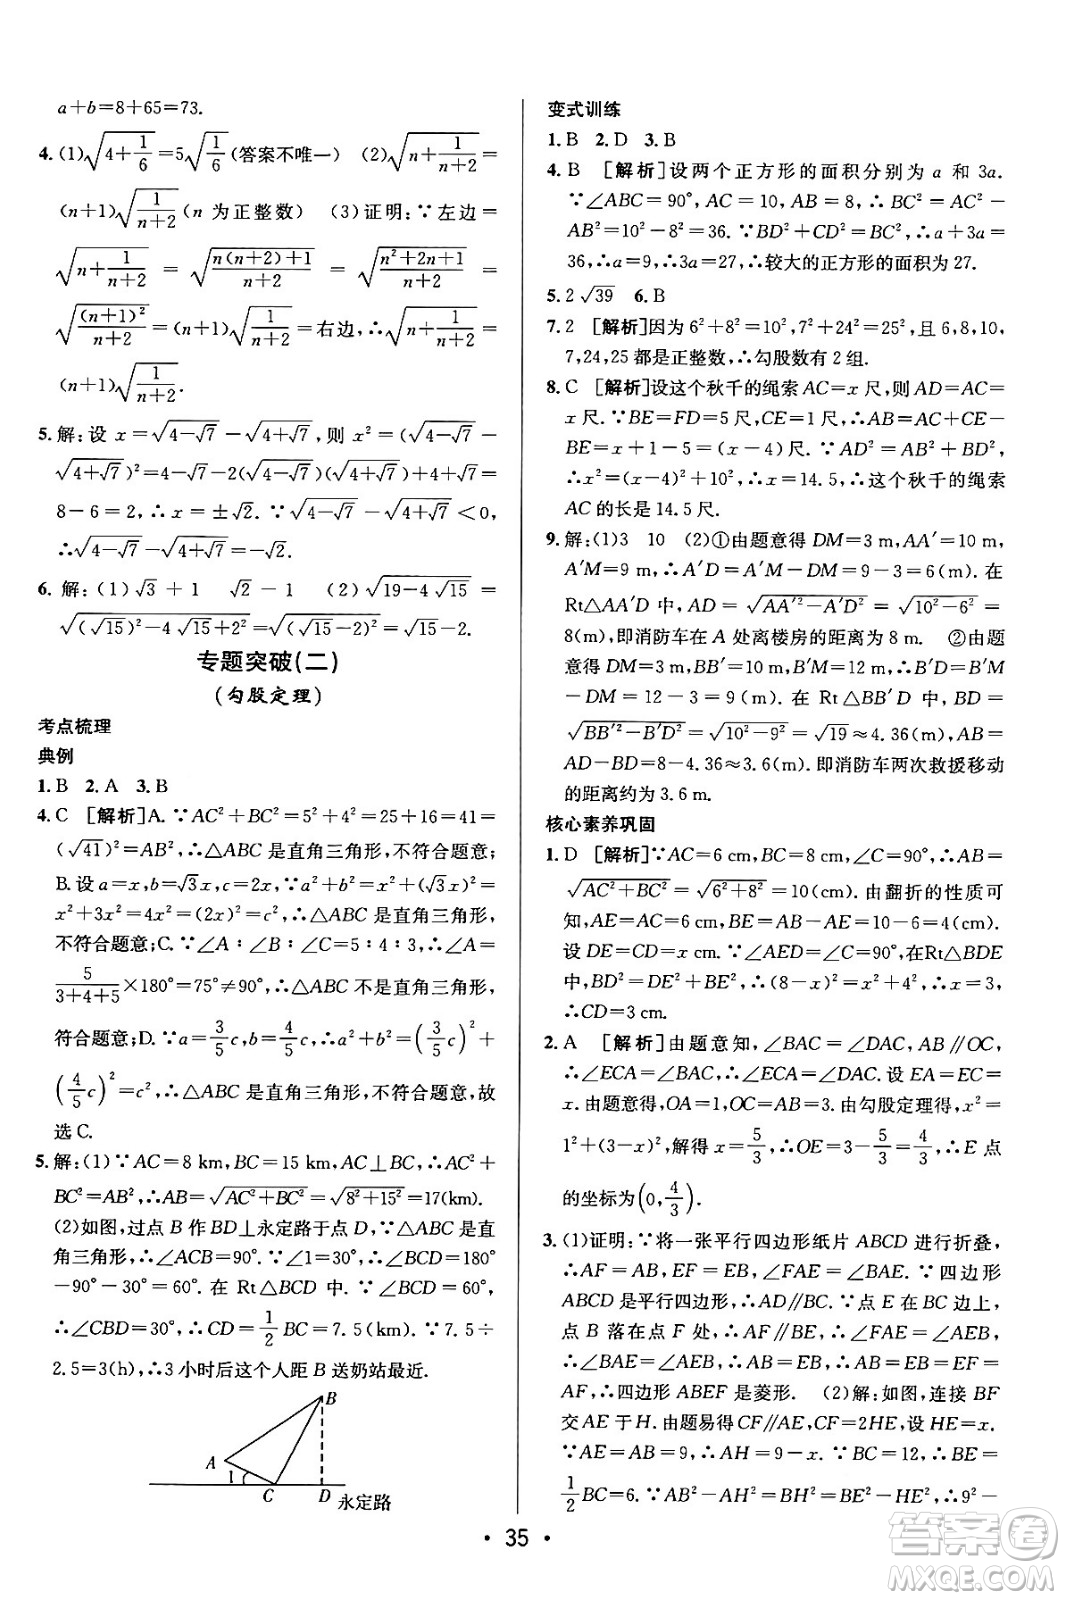 a+b=8+65=73.
4.(1)√(4+1/6)=5√(1/6)(答案不唯一)  (2)√(n+1/(n+2))=
(n+1)√(1/(n+2))(n 为正整数)  (3)证明:∵左边=
√(n+1/(n+2))=√((n(n+2)+1)/(n+2))=√((n²+2n+1)/(n+2))=
√((n+1)²/(n+2))=(n+1)√(1/(n+2))=右边,∴√(n+1/(n+2))=
(n+1)√(1/(n+2)).
5.解:设 x=√(4-√7)-√(4+√7),则 x²=(√(4-√7)-
√(4+√7))²=4-√7-2(√(4-√7))(√(4+√7))+4+√7=
8-6=2,∴x=±√2.∵√(4-√7)-√(4+√7)<0,
∴√(4-√7)-√(4+√7)=-√2.
6.解:(1)√3+1  √2-1  (2)√(19-4√15)=
√((√15)²-4√15+2²)=√((√15-2)²)=√15-2.
专题突破(二)
(勾股定理)
考点梳理
典例
1.B  2.A  3.B
4.C  [解析]A.∵AC²+BC²=5²+4²=25+16=41=
(√41)²=AB²,∴△ABC是直角三角形,不符合题意;
B.设 a=x,b=√3x,c=2x,∵a²+b²=x²+(√3x)²=
x²+3x²=4x²=(2x)²=c²,∴△ABC是直角三角形,
不符合题意;C.∵∠A∶∠B∶∠C=5∶4∶3,∴∠A=
5/(3+4+5)×180°=75°≠90°,∴△ABC不是直角三角形,
符合题意;D.∵a=3/5c,b=4/5c,∴a²+b²=(3/5c)²+
(4/5c)²=c²,∴△ABC是直角三角形,不符合题意,故
选C.
5.解:(1)∵AC=8 km,BC=15 km,AC⊥BC,∴AC²+
BC²=AB²,∴AB=√(AC²+BC²)=√(8²+15²)=17(km).
(2)如图,过点 B 作BD⊥永定路于点 D,∵△ABC是直
角三角形,∴∠ACB=90°.∵∠1=30°,∴∠BCD=180°
-90°-30°=60°.在 Rt△BCD 中.∵∠BCD=60°,
∴∠CBD=30°,∴CD=1/2BC=7.5(km).∵7.5÷
2.5=3(h),∴3 小时后这个人距 B 送奶站最近.
B
A
1
C
D
永定路
变式训练
1.B  2.D  3.B
4.B  [解析]设两个正方形的面积分别为 a 和 3a.
∵∠ABC=90°,AC=10,AB=8,∴BC²=AC²-
AB²=10²-8²=36.∵BD²+CD²=BC²,∴a+3a=
36,∴a=9,∴3a=27,∴较大的正方形的面积为 27.
5.2√39  6.B
7.2  [解析]因为 6²+8²=10²,7²+24²=25²,且 6,8,10,
7,24,25 都是正整数,∴勾股数有 2 组.
8.C  [解析]设这个秋千的绳索 AC=x 尺,则 AD=AC=
x 尺.∵BE=FD=5尺,CE=1尺,∴AB=AC+CE-
BE=x+1-5=(x-4)尺.∵AD²=AB²+BD²,
∴x²=(x-4)²+10²,∴x=14.5,∴这个秋千的绳索
AC的长是14.5尺.
9.解:(1)3  10  (2)①由题意得 DM=3 m,AA′=10 m,
A′M=9 m,∴A′D=A′M-DM=9-3=6(m).在
Rt△AA′D 中,AD=√(AA′²-A′D²)=√(10²-6²)=
8(m),即消防车在 A 处离楼房的距离为 8 m.  ②由题
意得 DM=3 m,BB′=10 m,B′M=12 m,∴B′D=B′M
-DM=12-3=9(m).在 Rt△BB′D 中,BD=
√(BB′²-B′D²)=√(10²-9²)=√19≈4.36(m),∴AB=
AD-BD=8-4.36≈3.6(m).即消防车两次救援移动
的距离约为 3.6 m.
核心素养巩固
1.D  [解析]∵AC=6 cm,BC=8 cm,∠C=90°,∴AB=
√(AC²+BC²)=√(6²+8²)=10(cm).由翻折的性质可
知,AE=AC=6 cm,BE=AB-AE=10-6=4(cm).
设 DE=CD=x cm,∵∠AED=∠C=90°,在Rt△BDE
中,BD²=DE²+BE²,∴(8-x)²=x²+4²,∴x=3,
∴CD=3 cm.
2.A  [解析]由题意知,∠BAC=∠DAC,AB∥OC,
∴∠ECA=∠BAC,∴∠ECA=∠DAC.设 EA=EC=
x.由题意得,OA=1,OC=AB=3.由勾股定理得,x²=
1²+(3-x)²,解得 x=5/3,∴OE=3-5/3=4/3,∴E 点
的坐标为(0,4/3).
3.(1)证明:∵将一张平行四边形纸片 ABCD进行折叠,
∴AF=AB,EF=EB,∠FAE=∠BAE.∵四边形
ABCD是平行四边形,∴AD∥BC.∵点 E 在 BC 边上,
点 B 落在点 F 处,∴AF∥BE,∴∠FAE=∠AEB,
∴∠BAE=∠AEB,∴AB=BE,∴AB=BE=EF=
AF,∴四边形 ABEF 是菱形.  (2)解:如图,连接 BF
交 AE 于 H.由题易得 CF∥AE,CF=2HE,设 HE=x.
∵AE=AB=9,∴AH=9-x.∵BC=12,∴BE=
1/2BC=6.∵AB²-AH²=BH²=BE²-HE²,∴9²-
• 35 •
答案卷
MXQE.COM